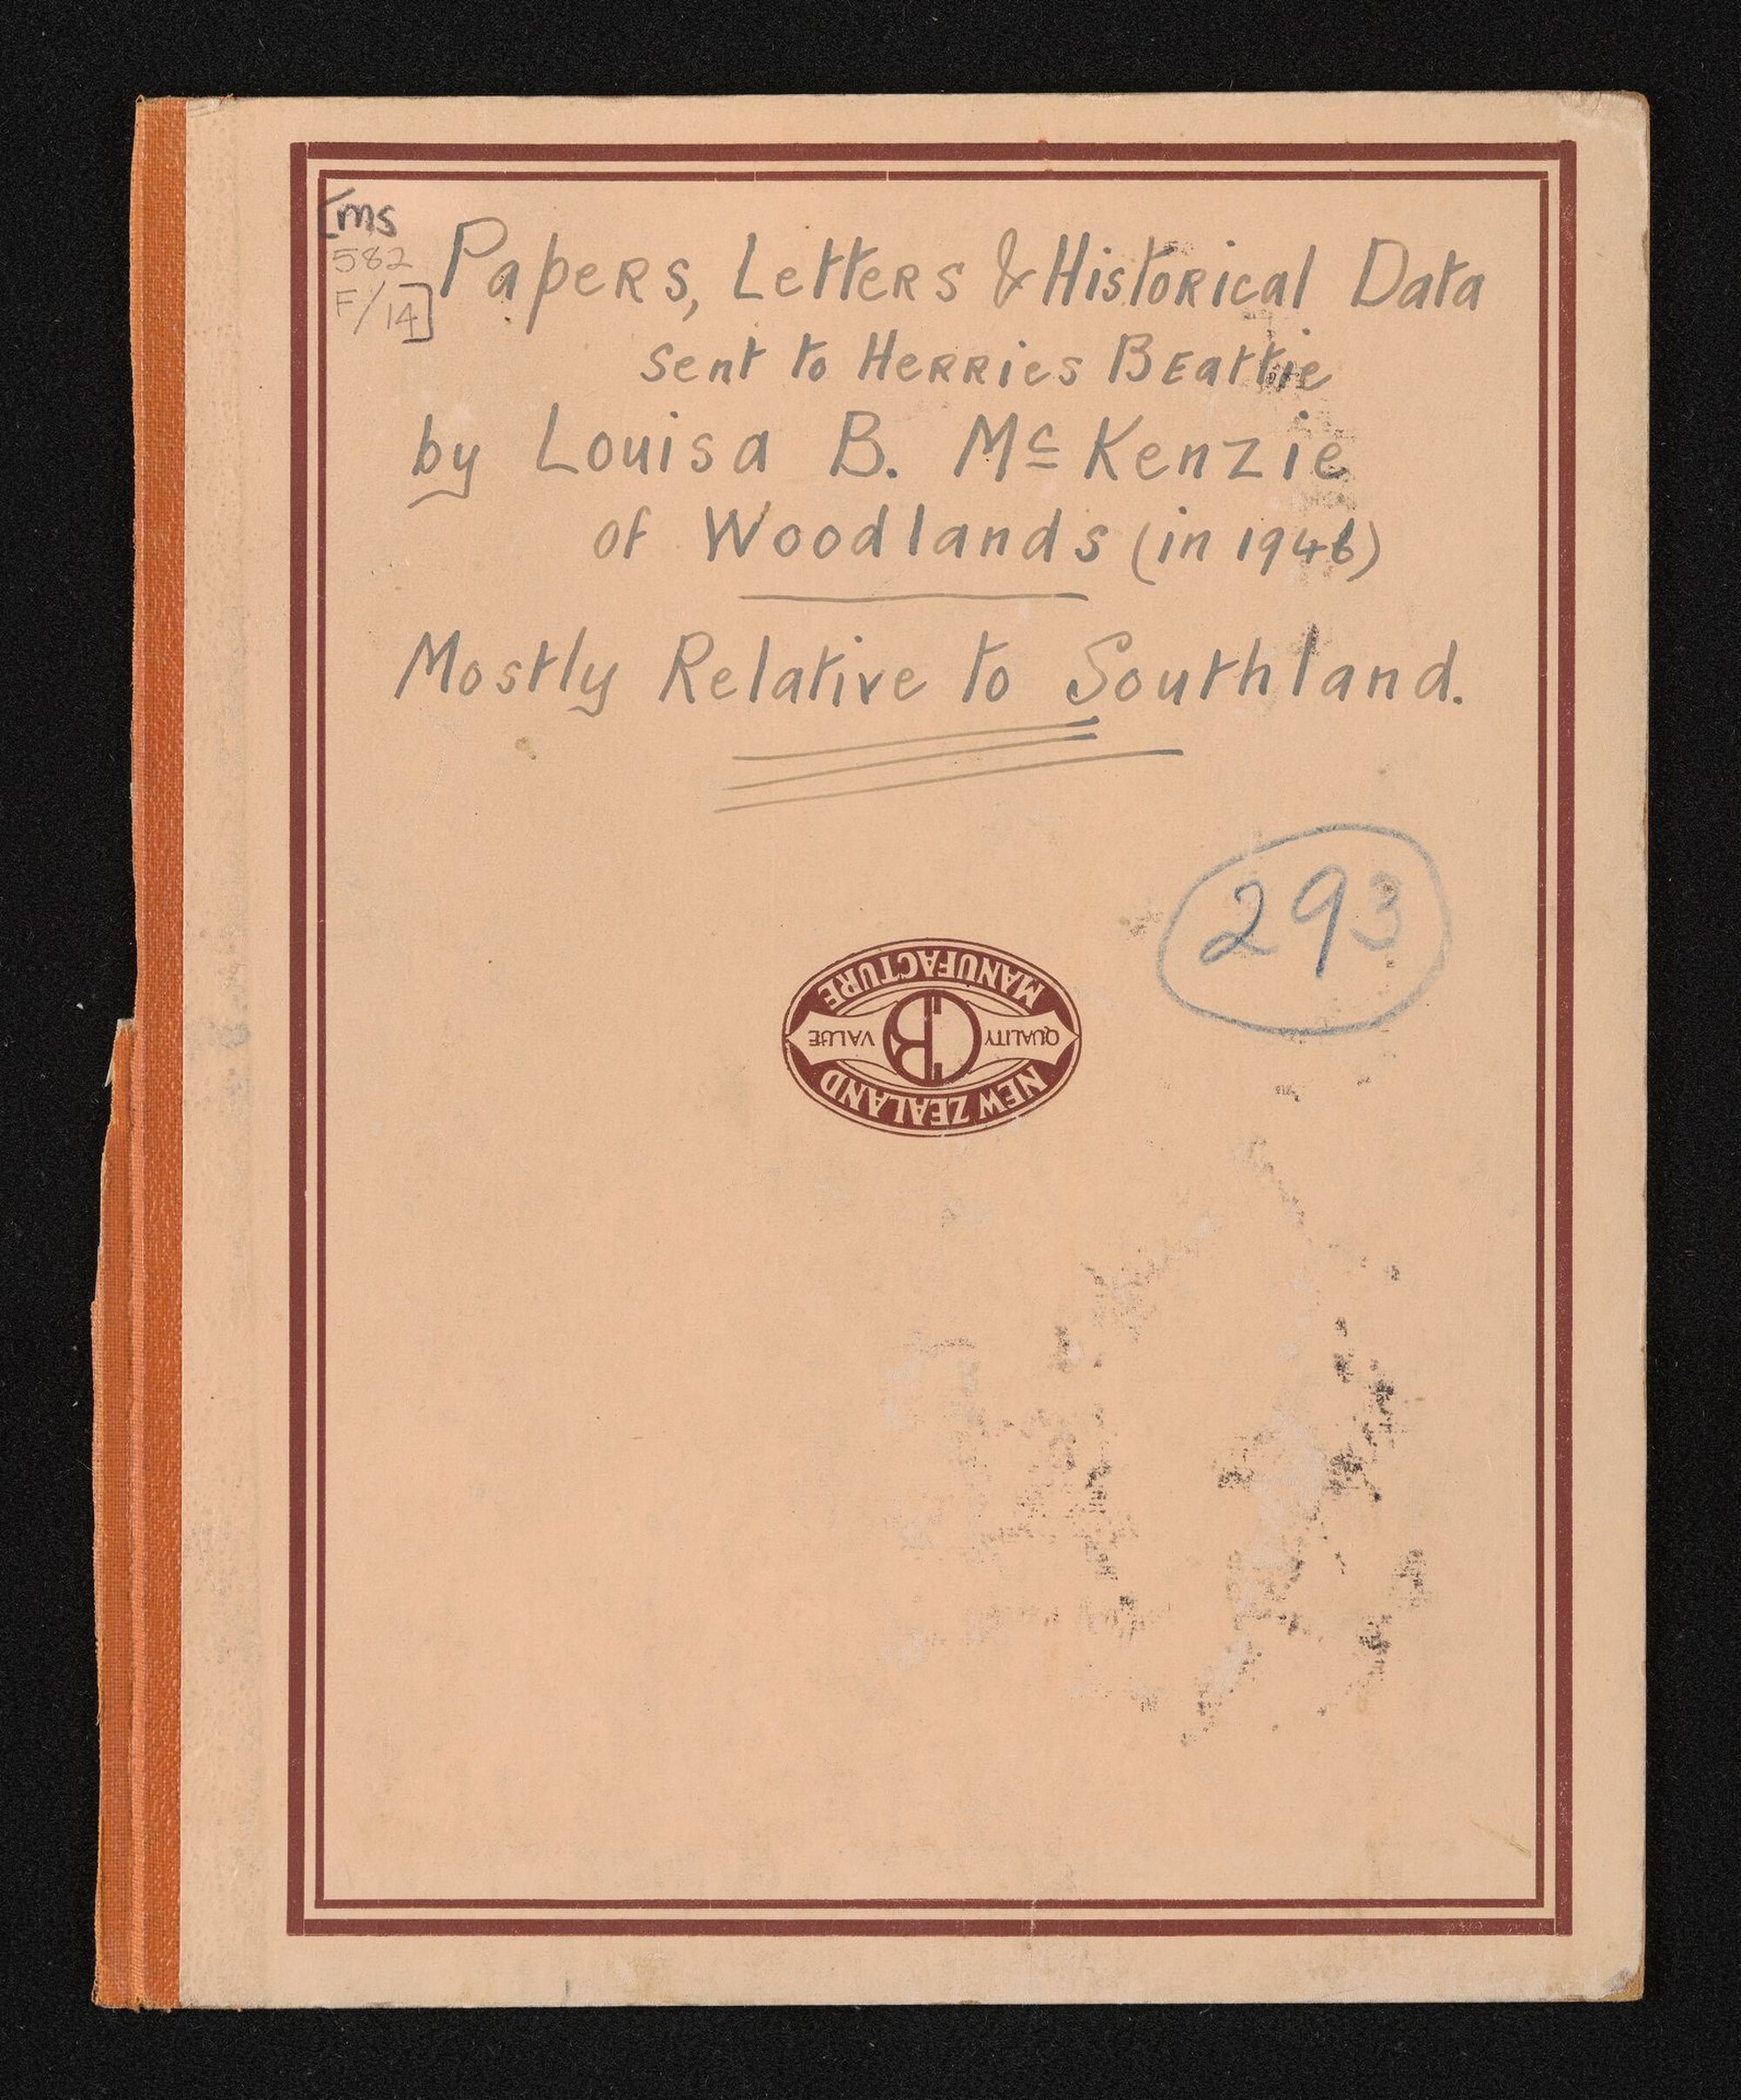 [ms
582
F/14]
Papers, Letters & Historical Data
sent to Herries Beattie
by Louisa B. Mc Kenzie
of Woodlands (in 1946)
Mostly Relative to Southland.
293
NEW ZEALAND
QUALITY CB VALUE
MANUFACTURE